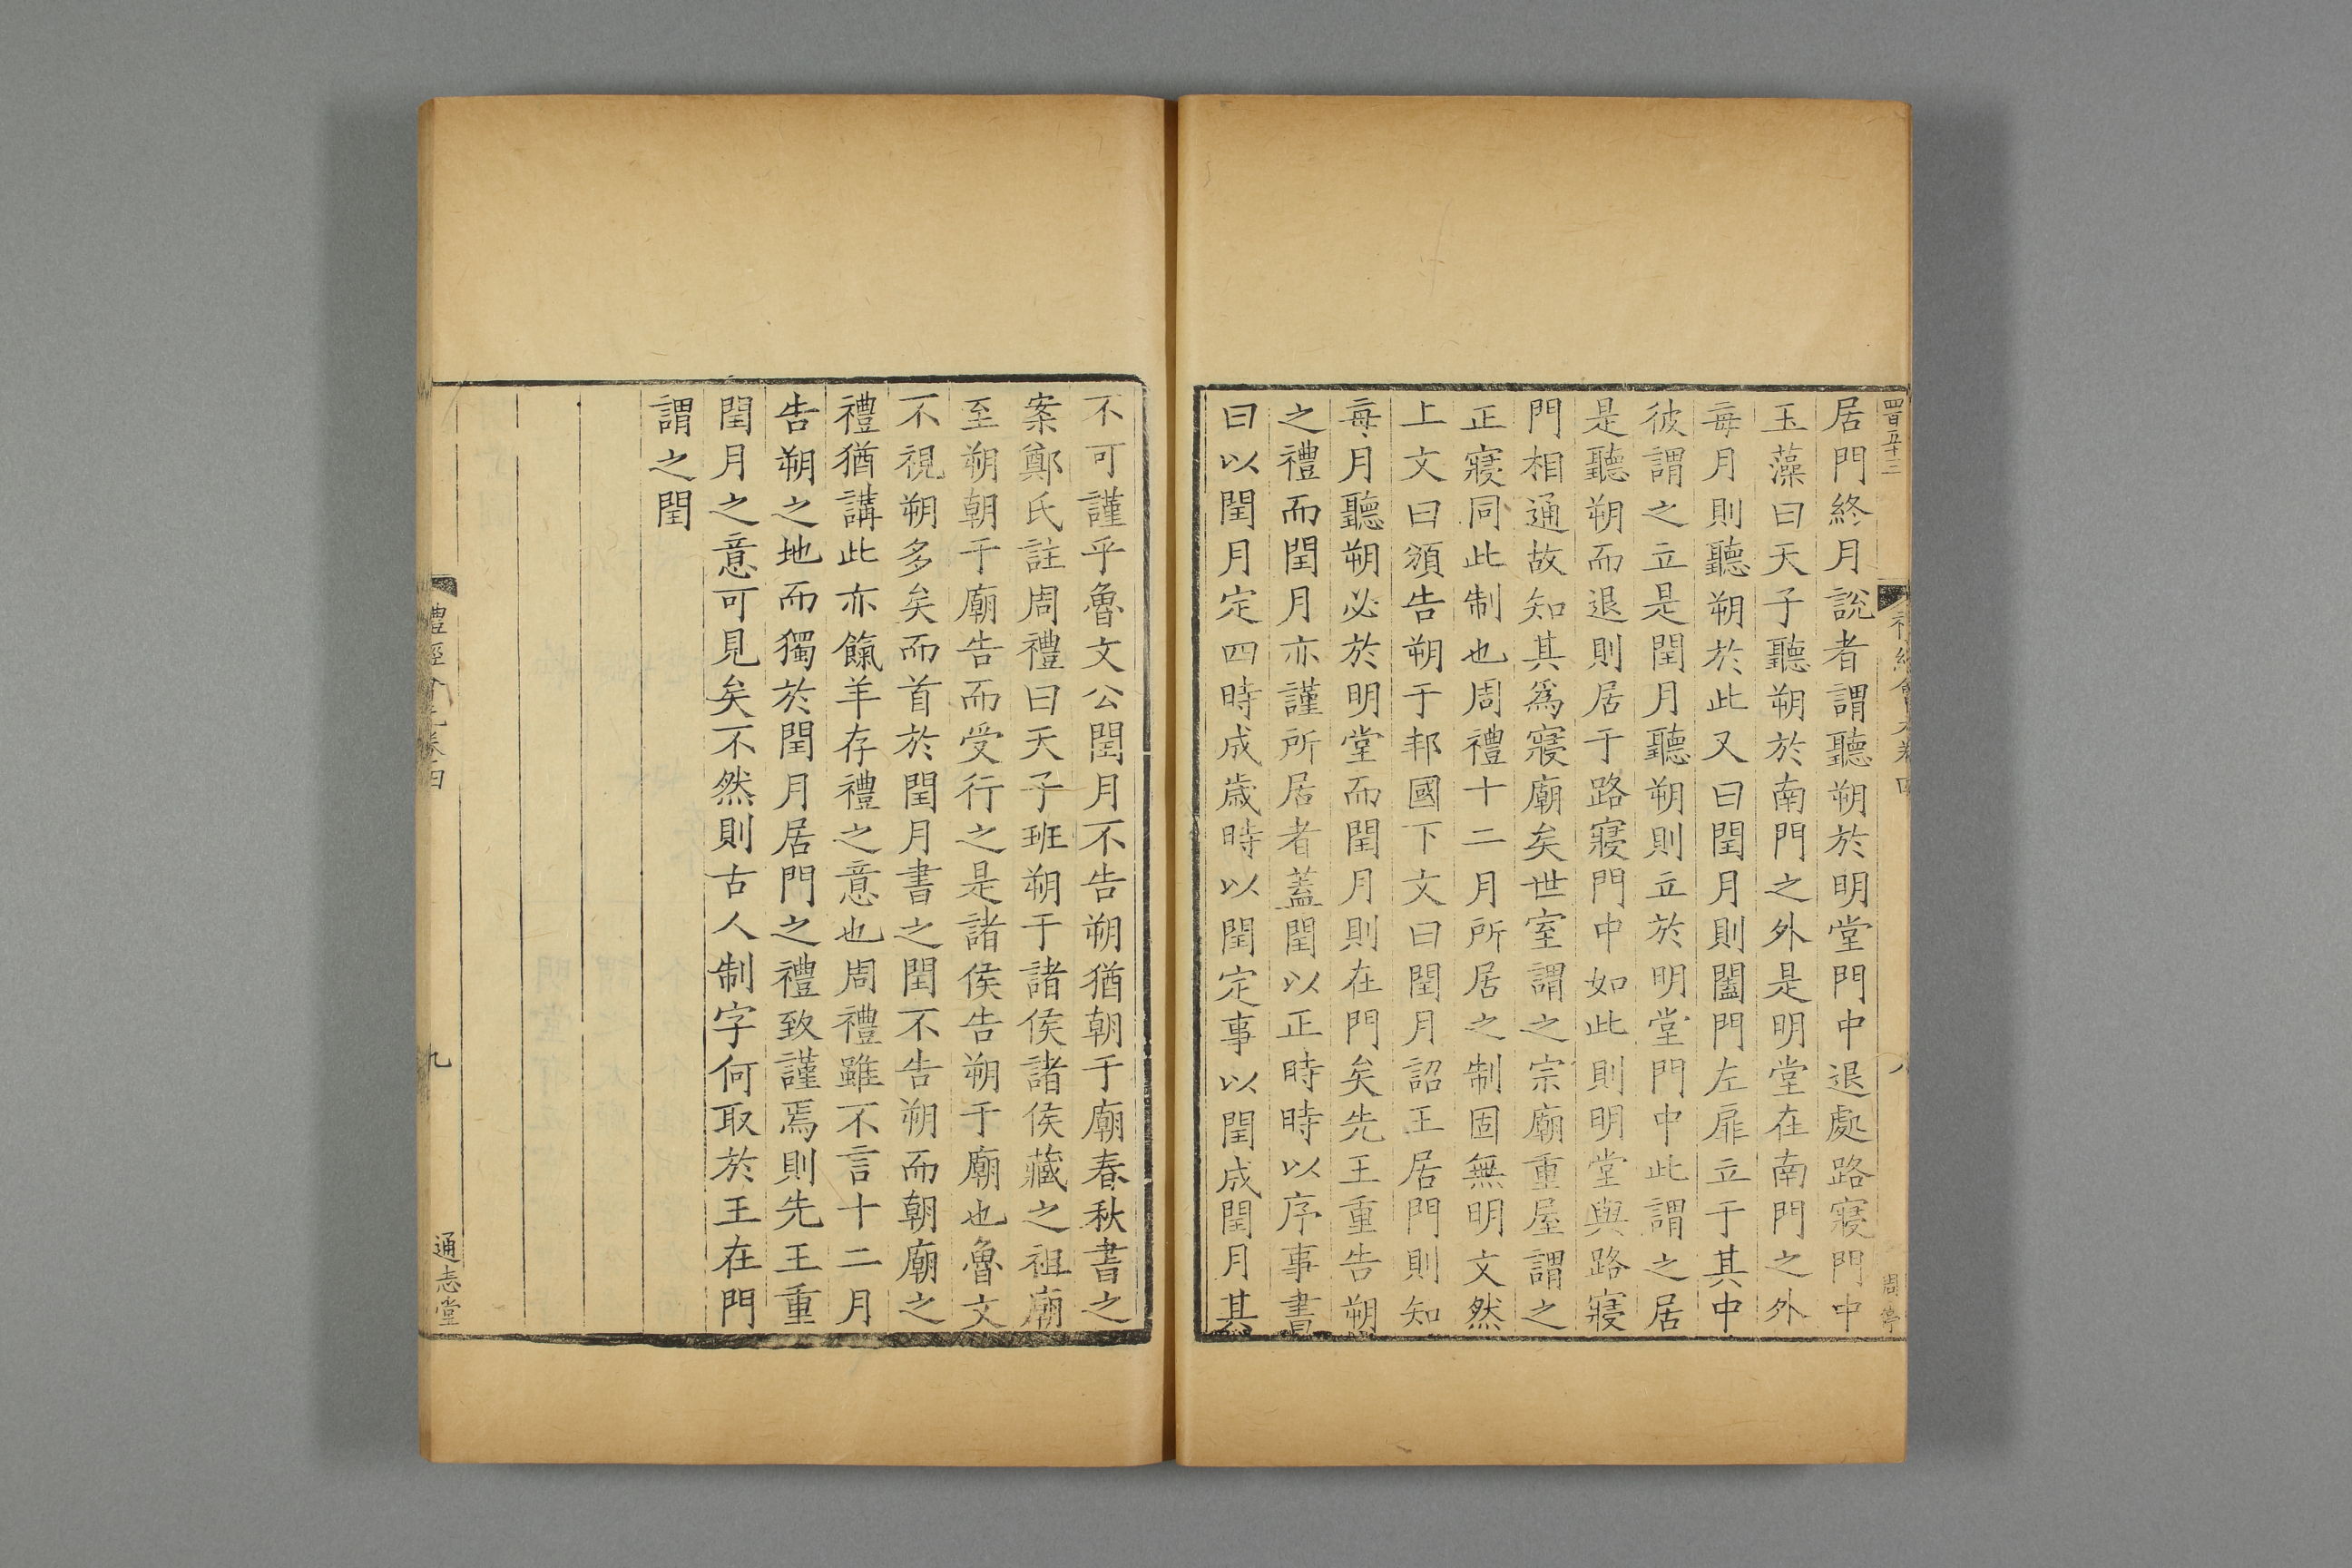 四百五十三
禮經會元卷四
八
周亭
居門終月說者謂聽朔於明堂門中退處路寢門中
玉藻曰天子聽朔於南門之外是明堂在南門之外
每月則聽朔於此又曰閏月則闔門左扉立于其中
彼謂之立是閏月聽朔則立於明堂門中此謂之居
是聽朔而退則居于路寢門中如此則明堂與路寢
門相通故知其爲寢廟矣世室謂之宗廟重屋謂之
正寢同此制也周禮十二月所居之制固無明文然
上文曰頒告朔于邦國下文曰閏月詔王居門則知
每月聽朔必於明堂而閏月則在門矣先王重告朔
之禮而閏月亦謹所居者蓋閏以正時時以序事書
曰以閏月定四時成歲時以閏定事以閏成閏月其
不可謹乎魯文公閏月不告朔猶朝于廟春秋書之
案鄭氏註周禮曰天子班朔于諸侯諸侯藏之祖廟
至朔朝于廟告而受行之是諸侯告朔于廟也魯文
不視朔多矣而首於閏月書之閏不告朔而朝廟之
禮猶講此亦餼羊存禮之意也周禮雖不言十二月
告朔之地而獨於閏月居門之禮致謹焉則先王重
閏月之意可見矣不然則古人制字何取於王在門
謂之閏
禮經會元卷四
九
通志堂